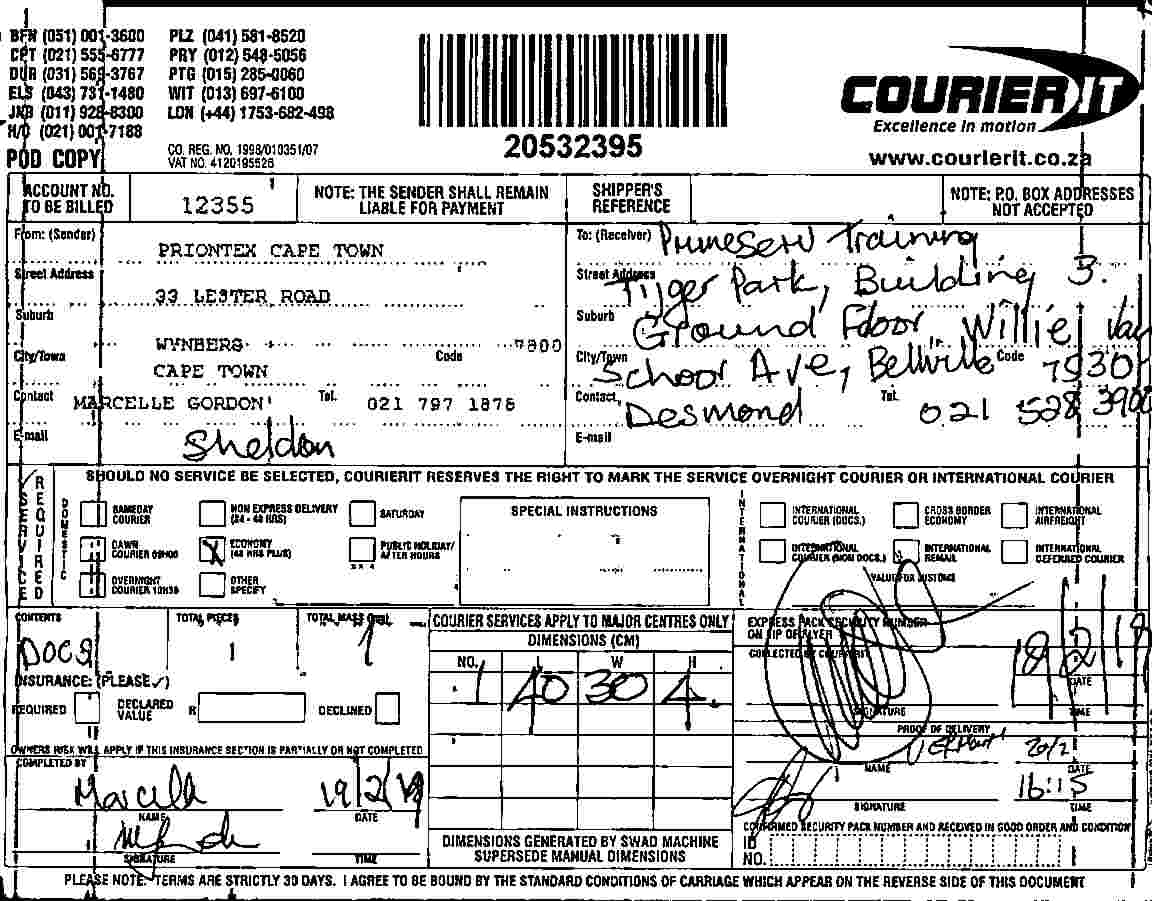 BFN (051) 001-3600 PLZ (041) 581-8520
CPT (021) 555-6777 PRY (012) 548-5056
DUR (031) 569-3767 PTG (015) 285-0060
ELS (043) 731-1480 WIT (013) 697-6100
JNB (011) 928-8300 LON (+44) 1753-682-498
H/O (021) 001-7188
POD COPY
CO. REG. NO. 1998/010351/07
VAT NO. 4120195526
20532395
COURIER IT
Excellence in motion
www.courierit.co.za
ACCOUNT NO. TO BE BILLED 12355
NOTE: THE SENDER SHALL REMAIN LIABLE FOR PAYMENT
SHIPPER'S REFERENCE
NOTE: P.O. BOX ADDRESSES NOT ACCEPTED
From: (Sender) PRIONTEX CAPE TOWN
Street Address 33 LESTER ROAD
Suburb WYNBERG
Code 7800
City/Town CAPE TOWN
Contact MARCELLE GORDON Tel. 021 797 1878
E-mail Sheldon
To: (Receiver) Primeserv Training
Street Address Tijger Park, Building 3.
Suburb Ground Floor, Willie Van
City/Town Schoor Ave, Bellville Code 7530
Contact Desmond Tel. 021 528 3900
E-mail
SHOULD NO SERVICE BE SELECTED, COURIERIT RESERVES THE RIGHT TO MARK THE SERVICE OVERNIGHT COURIER OR INTERNATIONAL COURIER
SERVICE REQUIRED
DOMESTIC
SAMEDAY COURIER
NON EXPRESS DELIVERY (24 - 48 HRS)
SATURDAY
DAWN COURIER 09H00
ECONOMY (48 HRS PLUS)
PUBLIC HOLIDAY/ AFTER HOURS
OVERNIGHT COURIER 10H30
OTHER SPECIFY
SPECIAL INSTRUCTIONS
INTERNATIONAL
INTERNATIONAL COURIER (DOCS.)
CROSS BORDER ECONOMY
INTERNATIONAL AIRFREIGHT
INTERNATIONAL COURIER (NON DOCS.)
INTERNATIONAL REMAIL
INTERNATIONAL DEFERRED COURIER
VALUE FOR CUSTOMS
CONTENTS DOCS
TOTAL PIECES 1
TOTAL MASS 1
INSURANCE: (PLEASE ✓)
REQUIRED DECLARED VALUE R DECLINED
OWNERS RISK WILL APPLY IF THIS INSURANCE SECTION IS PARTIALLY OR NOT COMPLETED
COMPLETED BY
Marcelle 19/2/19
NAME DATE
SIGNATURE TIME
COURIER SERVICES APPLY TO MAJOR CENTRES ONLY
DIMENSIONS (CM)
NO. L W H
1 40 30 4
DIMENSIONS GENERATED BY SWAD MACHINE SUPERSEDE MANUAL DIMENSIONS
EXPRESS PACK SECURITY NUMBER ON ZIP OF FLYER
COLLECTED BY COURIERIT
19/2/19
DATE
SIGNATURE TIME
PROOF OF DELIVERY
20/2
NAME DATE
16:15
SIGNATURE TIME
CONFIRMED SECURITY PACK NUMBER AND RECEIVED IN GOOD ORDER AND CONDITION
ID NO.
PLEASE NOTE: TERMS ARE STRICTLY 30 DAYS. I AGREE TO BE BOUND BY THE STANDARD CONDITIONS OF CARRIAGE WHICH APPEAR ON THE REVERSE SIDE OF THIS DOCUMENT